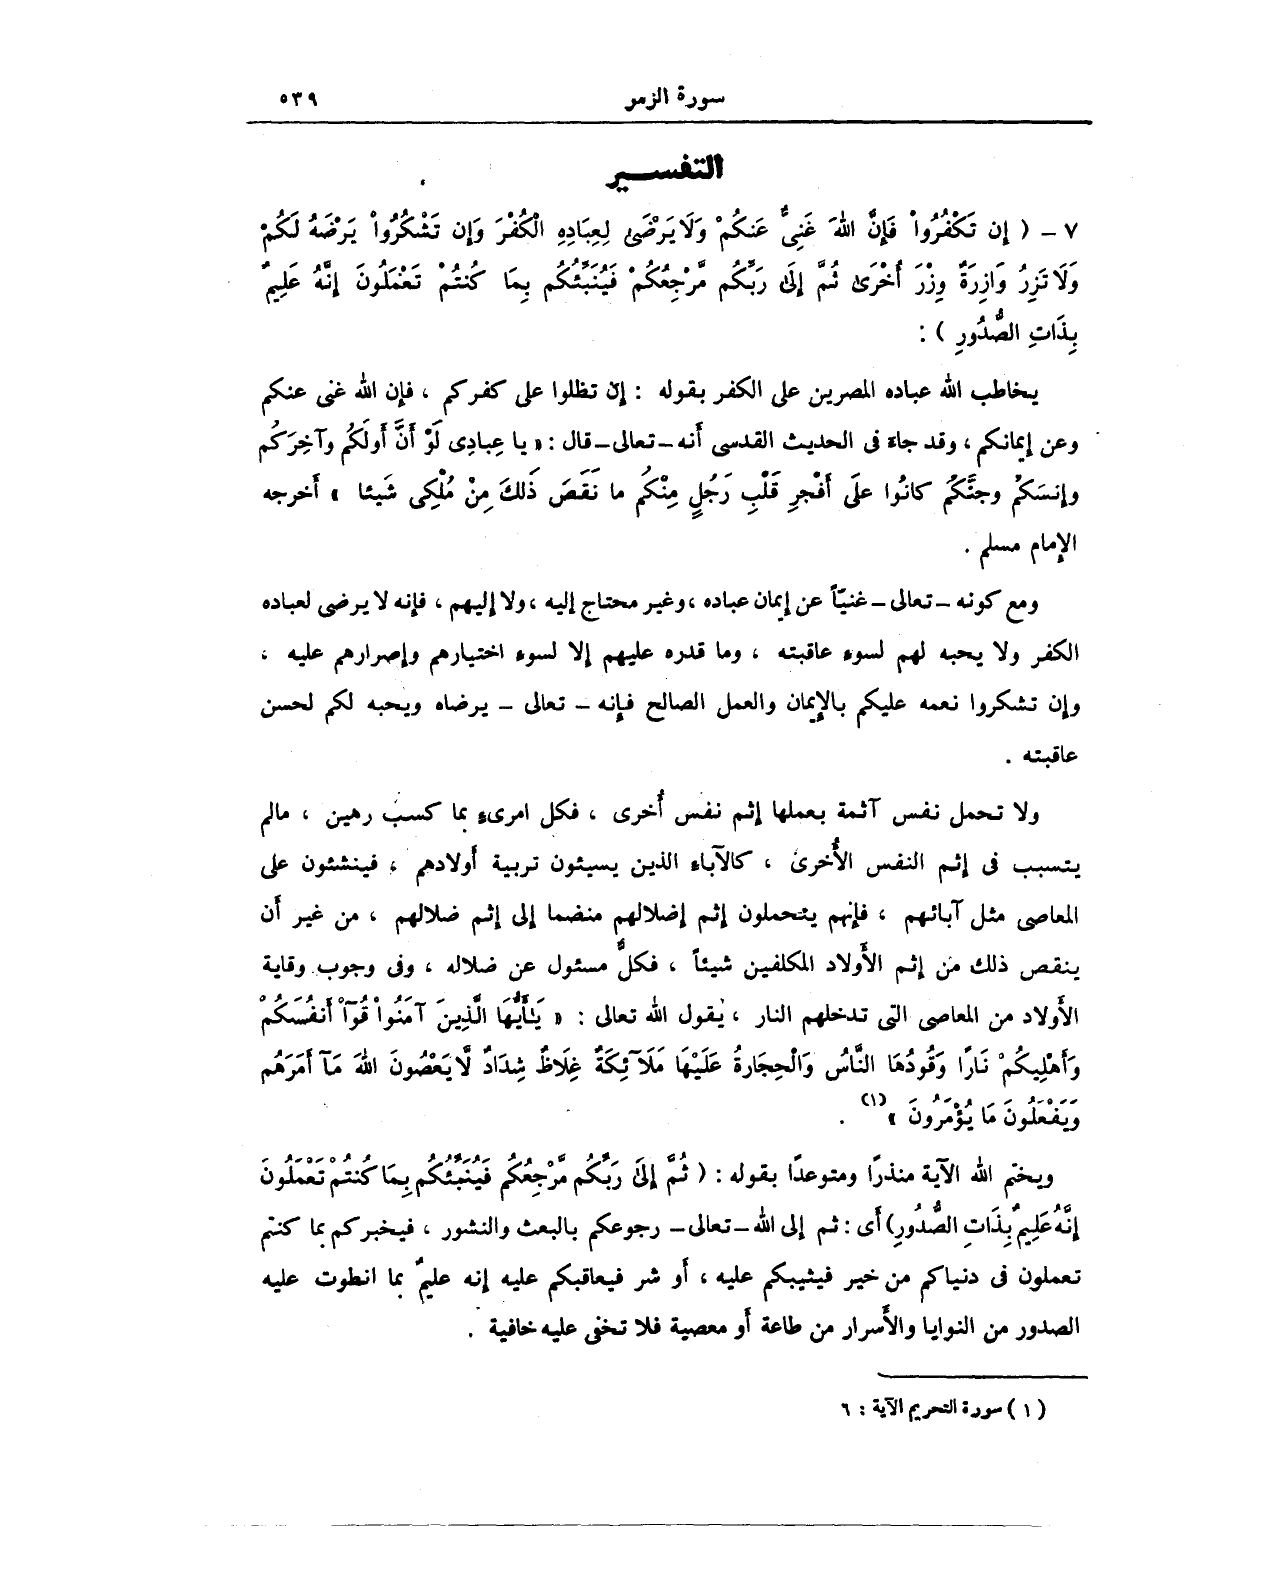 سورة الزمر ٥٣٩
التفسير
٧ - ( إِن تَكْفُرُواْ فَإِنَّ اللهَ غَنِىٌّ عَنكُمْ وَلَا يَرْضَىٰ لِعِبَادِهِ الْكُفْرَ وَإِن تَشْكُرُواْ يَرْضَهُ لَكُمْ
وَلَا تَزِرُ وَازِرَةٌ وِزْرَ أُخْرَىٰ ثُمَّ إِلَىٰ رَبِّكُم مَّرْجِعُكُمْ فَيُنَبِّئُكُم بِمَا كُنتُمْ تَعْمَلُونَ إِنَّهُ عَلِيمٌ
بِذَاتِ الصُّدُورِ ) :
يخاطب الله عباده المصرين على الكفر بقوله : إن تظلوا على كفركم ، فإن الله غنى عنكم
وعن إيمانكم ، وقد جاءَ فى الحديث القدسى أنه - تعالى - قال : « يا عِبادِى لَوْ أَنَّ أَولَكُم وآخِرَكُم
وإنسَكُمْ وجنَّكُمْ كانُوا علَى أَفْجرِ قَلْبِ رَجُلٍ مِنْكُم ما نَقَصَ ذَلكَ مِنْ مُلْكِى شَيئا » أخرجه
الإمام مسلم .
ومع كونه - تعالى - غنيّاً عن إيمان عباده ، وغير محتاج إليه ، ولا إليهم ، فإنه لا يرضى لعباده
الكفر ولا يحبه لهم لسوء عاقبته ، وما قدره عليهم إلا لسوء اختيارهم وإصرارهم عليه ،
وإن تشكروا نعمه عليكم بالإيمان والعمل الصالح فإنه - تعالى - يرضاه ويحبه لكم لحسن
عاقبته .
ولا تحمل نفس آثمة بعملها إثم نفس أُخرى ، فكل امرىء بما كسب رهين ، مالم
يتسبب فى إثم النفس الأُخرى ، كالآباء الذين يسيئون تربية أولادهم ، فينشئون على
المعاصى مثل آبائهم ، فإنهم يتحملون إثم إضلالهم منضما إلى إثم ضلالهم ، من غير أن
ينقص ذلك من إثم الأَولاد المكلفين شيئاً ، فكلٌّ مسئول عن ضلاله ، وفى وجوب وقاية
الأَولاد من المعاصى التى تدخلهم النار ، يقول الله تعالى : « يَٰأَيُّهَا الَّذِينَ آمَنُواْ قُوٓاْ أَنفُسَكُمْ
وَأَهْلِيكُمْ نَارًا وَقُودُهَا النَّاسُ وَالْحِجَارةُ عَلَيْهَا مَلَآئِكَةٌ غِلَاظٌ شِدَادٌ لَّا يَعْصُونَ اللهَ مَآ أَمَرَهُم
وَيَفْعَلُونَ مَا يُؤْمَرُونَ » (١) .
ويختم الله الآية منذرًا ومتوعدًا بقوله : ( ثُمَّ إِلَىٰ رَبِّكُم مَّرْجِعُكُم فَيُنَبِّئُكُم بِمَا كُنتُمْ تَعْمَلُونَ
إِنَّهُ عَلِيمٌ بِذَاتِ الصُّدُورِ ) أى : ثم إلى الله - تعالى - رجوعكم بالبعث والنشور ، فيخبركم بما كنتم
تعملون فى دنياكم من خير فيثيبكم عليه ، أو شر فيعاقبكم عليه إنه عليمٌ بما انطوت عليه
الصدور من النوايا والأَسرار من طاعة أو معصية فلا تخفى عليه خافية .
( ١ ) سورة التحريم الآية : ٦